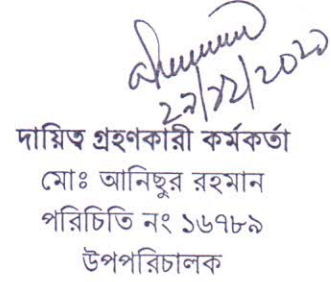 ২৭/১২/২০২১
দায়িত্ব গ্রহণকারী কর্মকর্তা
মোঃ আনিছুর রহমান
পরিচিতি নং ১৬৭৮৯
উপপরিচালক